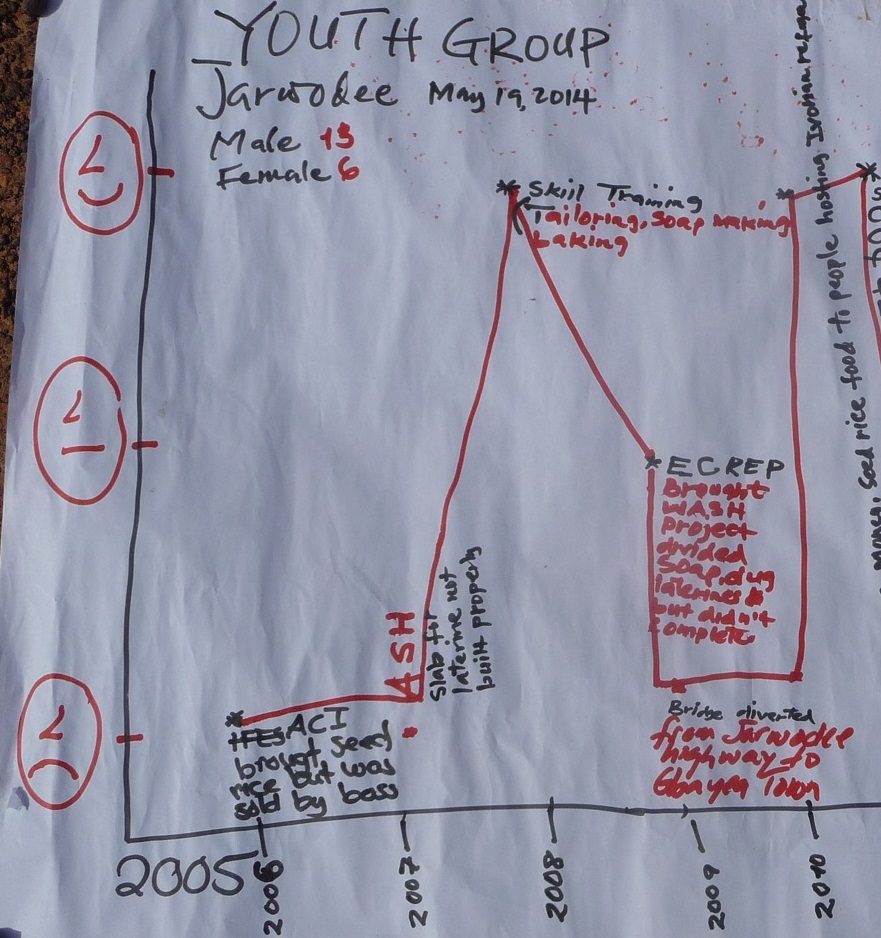 YOUTH GROUP
Jarwodee May 19, 2014
Male 13
Female 6
* Skill Training
Tailoring, Soap making
baking
* ECREP
Brought
WASH
project
divided
Soap, dug
laterines &
but didn't
complete
ASH
Slab for
laterine not
built property
* ACI
brought seed
rice but was
sold by boss
Bridge diverted
from Jarwodee
highway to
Gbanyea Town
food to people hosting Ivorian
money, seed rice
2005
2006
2007
2008
2009
2010